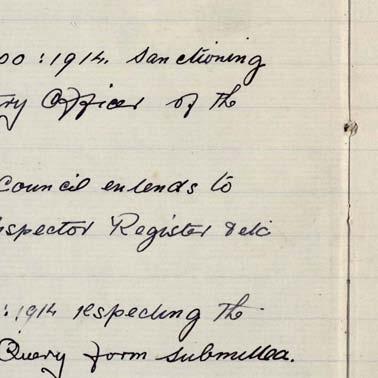 00 : 1914. Sanctioning
ry Officer of the
Council entends to
nspector Register & etc
: 1914 respecting the
Query form submitted.